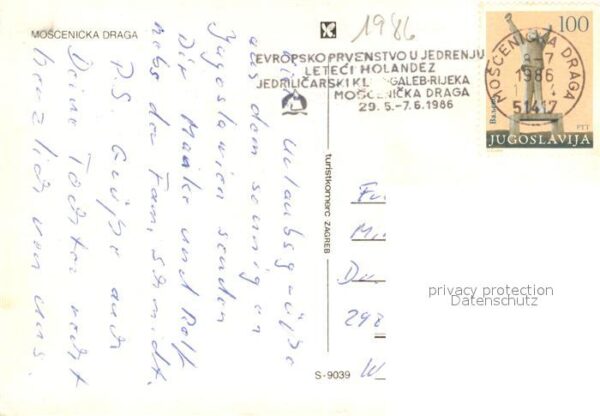 MOŠĆENIČKA DRAGA
1986
EVROPSKO PRVENSTVO U JEDRENJU
LETEĆI HOLANDEZ
JEDRILIČARSKI KL GALEB-RIJEKA
MOŠĆENIČKA DRAGA
29. 5.-7. 6. 1986
MOŠĆENIČKA DRAGA
1986
51417
100
PTT
JUGOSLAVIJA
Urlaubsgrüße
aus dem sonnigen
Jugoslavien senden
Dir Maike und Rolf
nebst der Fam. Schmidt.
P.S. Grüße auch
Deine Tochter recht
herzlich von uns.
turistkomerc ZAGREB
S-9039
privacy protection
Datenschutz